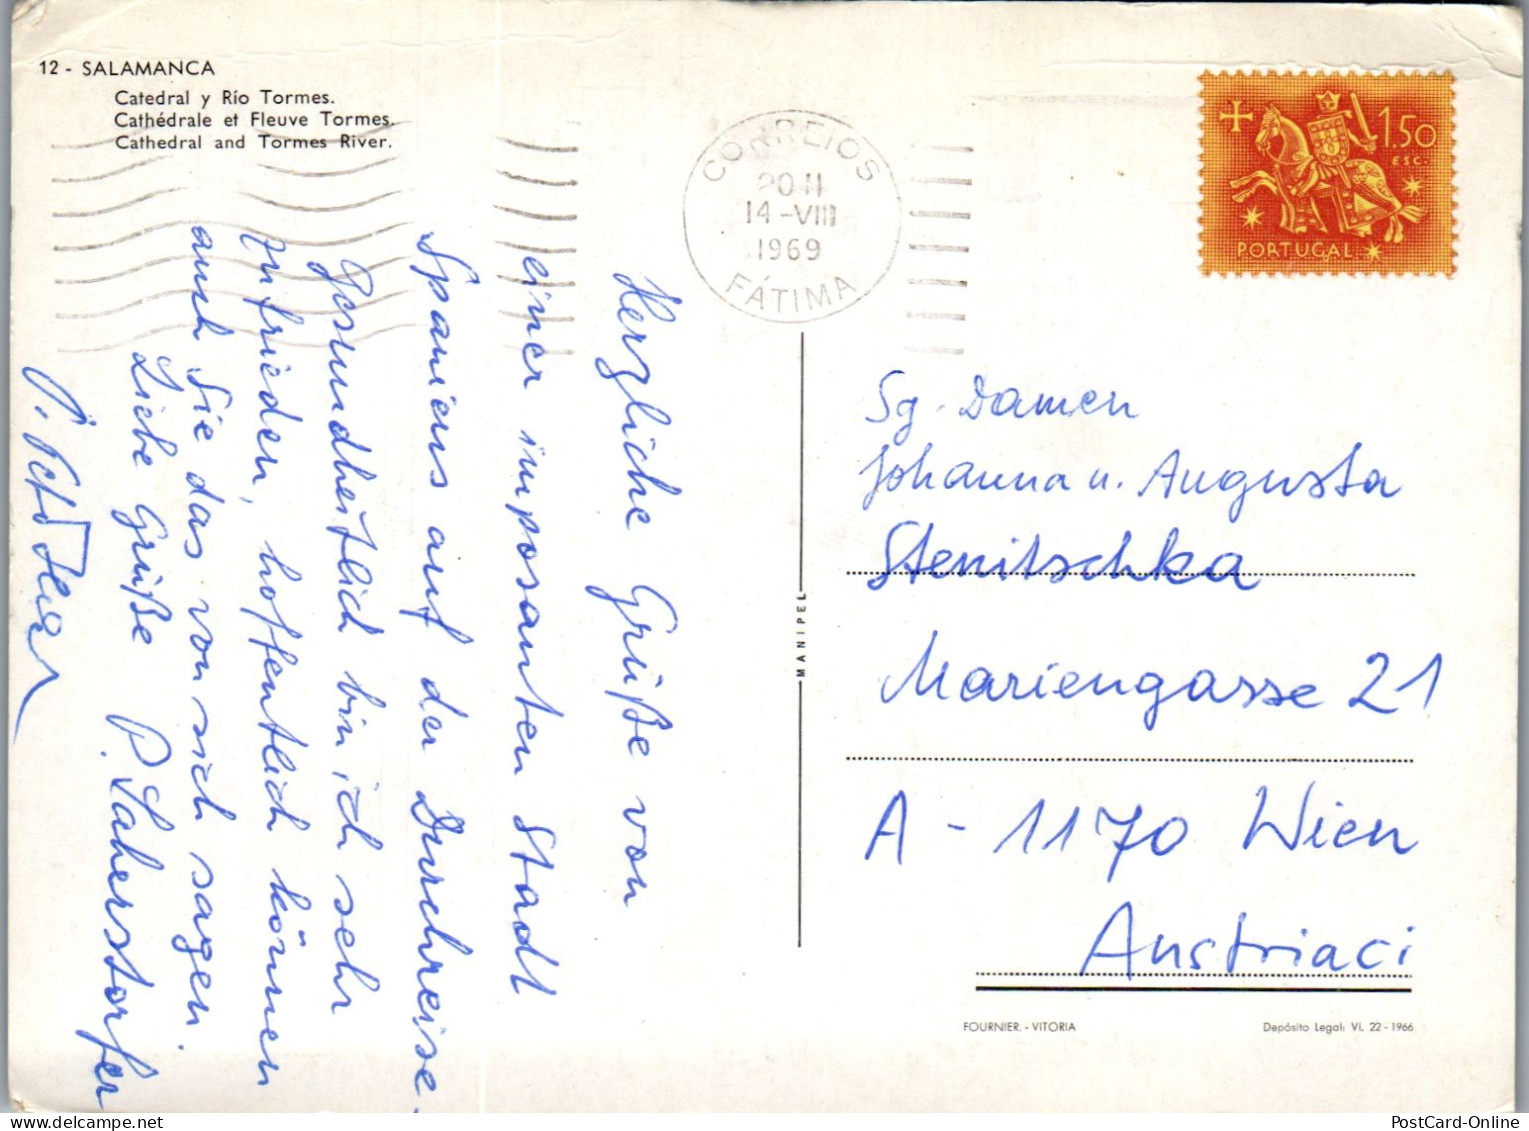 12 - SALAMANCA
Catedral y Río Tormes.
Cathédrale et Fleuve Tormes.
Cathedral and Tormes River.
CORREIOS
20 11
14 -VIII
1969
FÁTIMA
1$50
ESC.
PORTUGAL
Herzliche Grüße von
einer imposanten Stadt
Spaniens auf der Durchreise.
Gesundheitlich bin ich sehr
zufrieden, hoffentlich können
auch Sie das von sich sagen.
Liebe Grüße P. Saherstorfer
MANIPEL
Sg. Damen
Johanna u. Augusta
Stenitschka
Mariengasse 21
A - 1170 Wien
Austriaci
FOURNIER. - VITORIA
Depósito Legal: VI. 22 - 1966
PostCard-Online